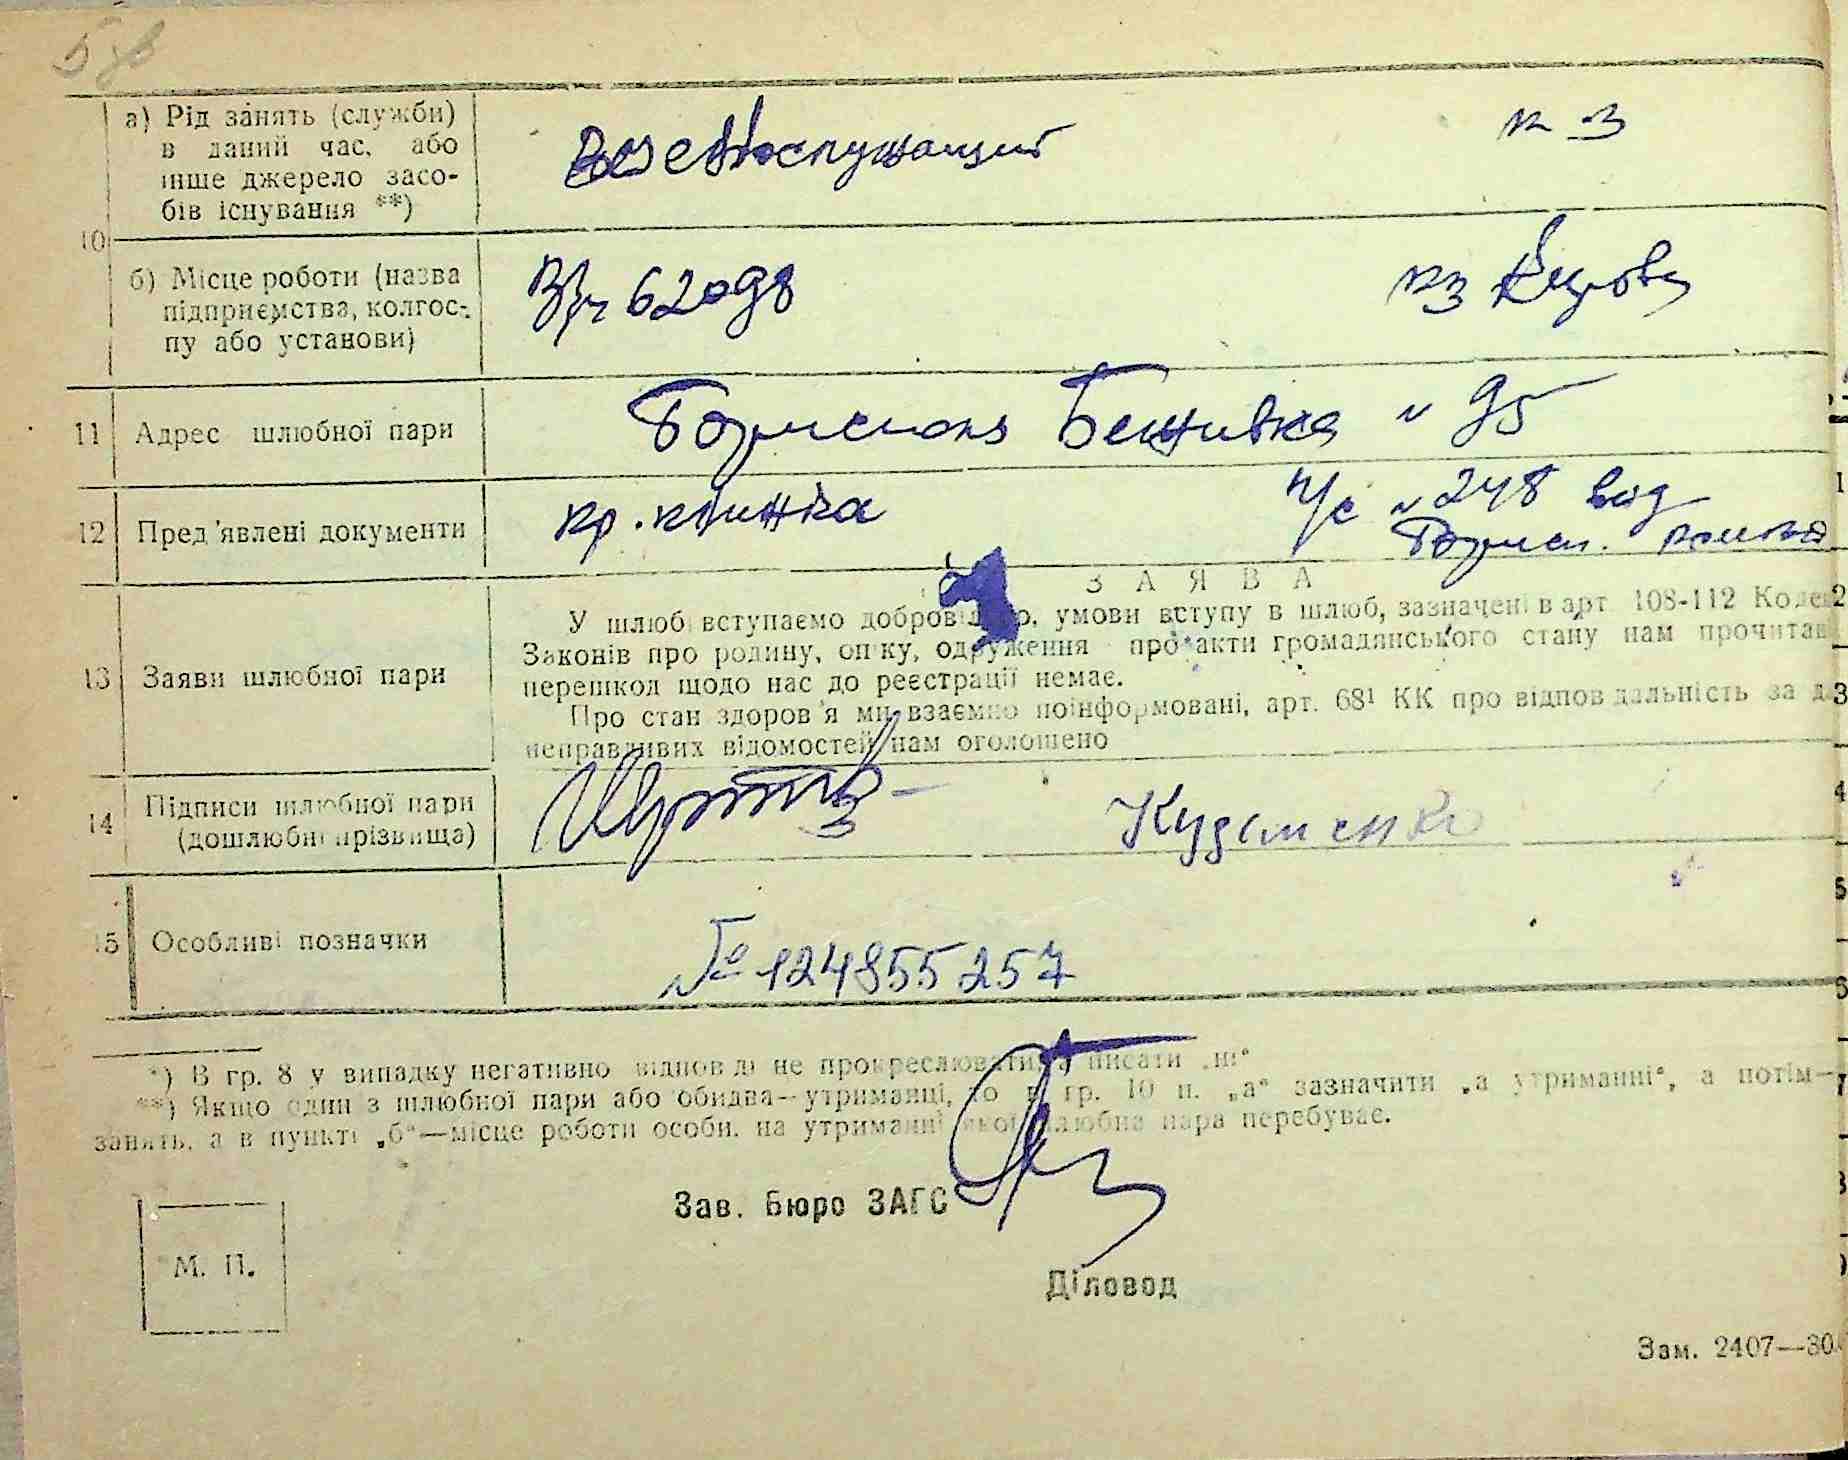 а) Рід занять (служби)
в даний час, або
інше джерело засо-
бів існування **)
к-з
10
б) Місце роботи (назва
підприємства, колгос-
пу або установи)
В/ч 62098
кз
11 Адрес шлюбної пари
№ 95
12 Пред'явлені документи
кр. книжка
п/с № 248 вид
13 Заяви шлюбної пари
ЗАЯВА
У шлюб вступаємо добровільно, умови вступу в шлюб, зазначені в арт 108-112 Кодек
Законів про родину, опіку, одруження про акти громадянського стану нам прочитан
перешкод щодо нас до реєстрації немає.
Про стан здоров'я ми взаємно поінформовані, арт. 68¹ КК про відповідальність за д
неправдивих відомостей нам оголошено
14 Підписи шлюбної пари
(дошлюбні прізвища)
Кузьменко
15 Особливі позначки
№ 124855257
*) В гр. 8 у випадку негативно відповіді не прокреслювати, а писати „ні“
**) Якщо один з шлюбної пари або обидва—утриманці, то в гр. 10 п. „а“ зазначити „а утриманні“, а потім—
занять, а в пункті „б“—місце роботи особи, на утриманні якої шлюбна пара перебуває.
Зав. Бюро ЗАГС
М. П.
Діловод
Зам. 2407—30